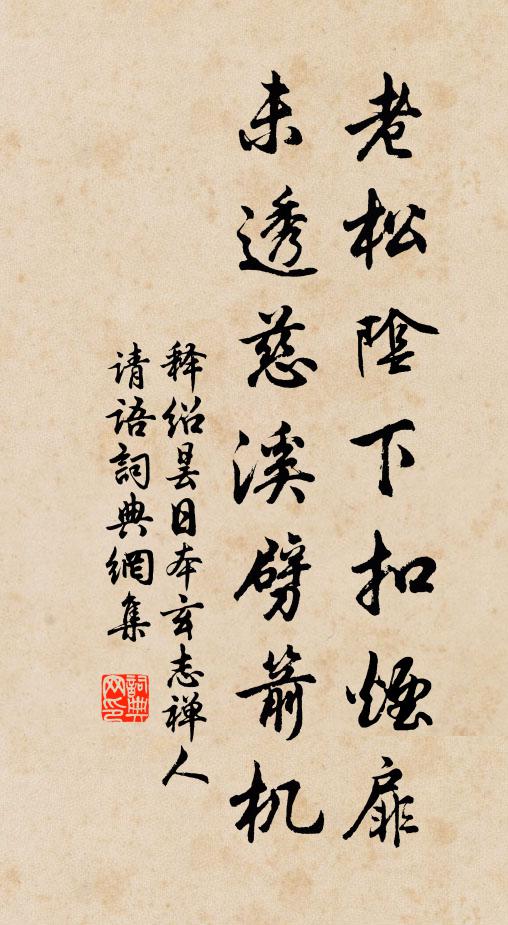 老松陰下扣煙扉
未透慈溪劈箭机
释绍昙日本玄志禅人
请语詞典網集
詞典
网印